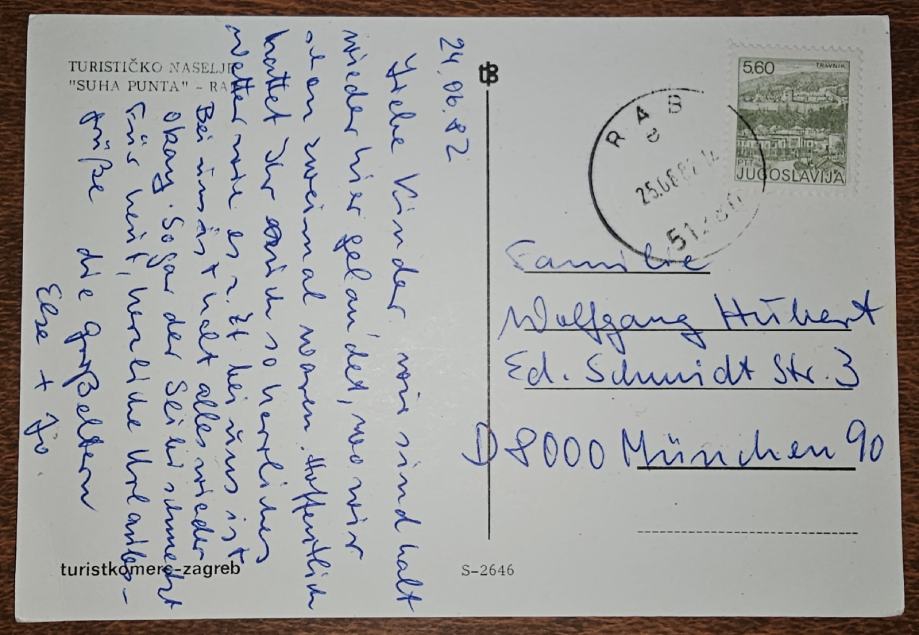 TURISTIČKO NASELJE
"SUHA PUNTA" - RAB
24.06.82
Liebe Kinder wir sind halt
wieder hier gelandet, wo wir
schon zweimal waren. Hoffentlich
hattet Ihr auch so herrliches
Wetter wie es z. Zt bei uns ist
Bei uns ist halt alles wieder
okay. Sogar der Slibi schmeckt
Für heut, herzliche Urlaubs-
grüße die Großeltern
Else + Jo.
turistkomerc-zagreb
S-2646
5.60
TRAVNIK
PTT
JUGOSLAVIJA
RAB
e
25.06.82
Familie
Wolfgang Hubert
Ed. Schmidt Str. 3
D 8000 München 90